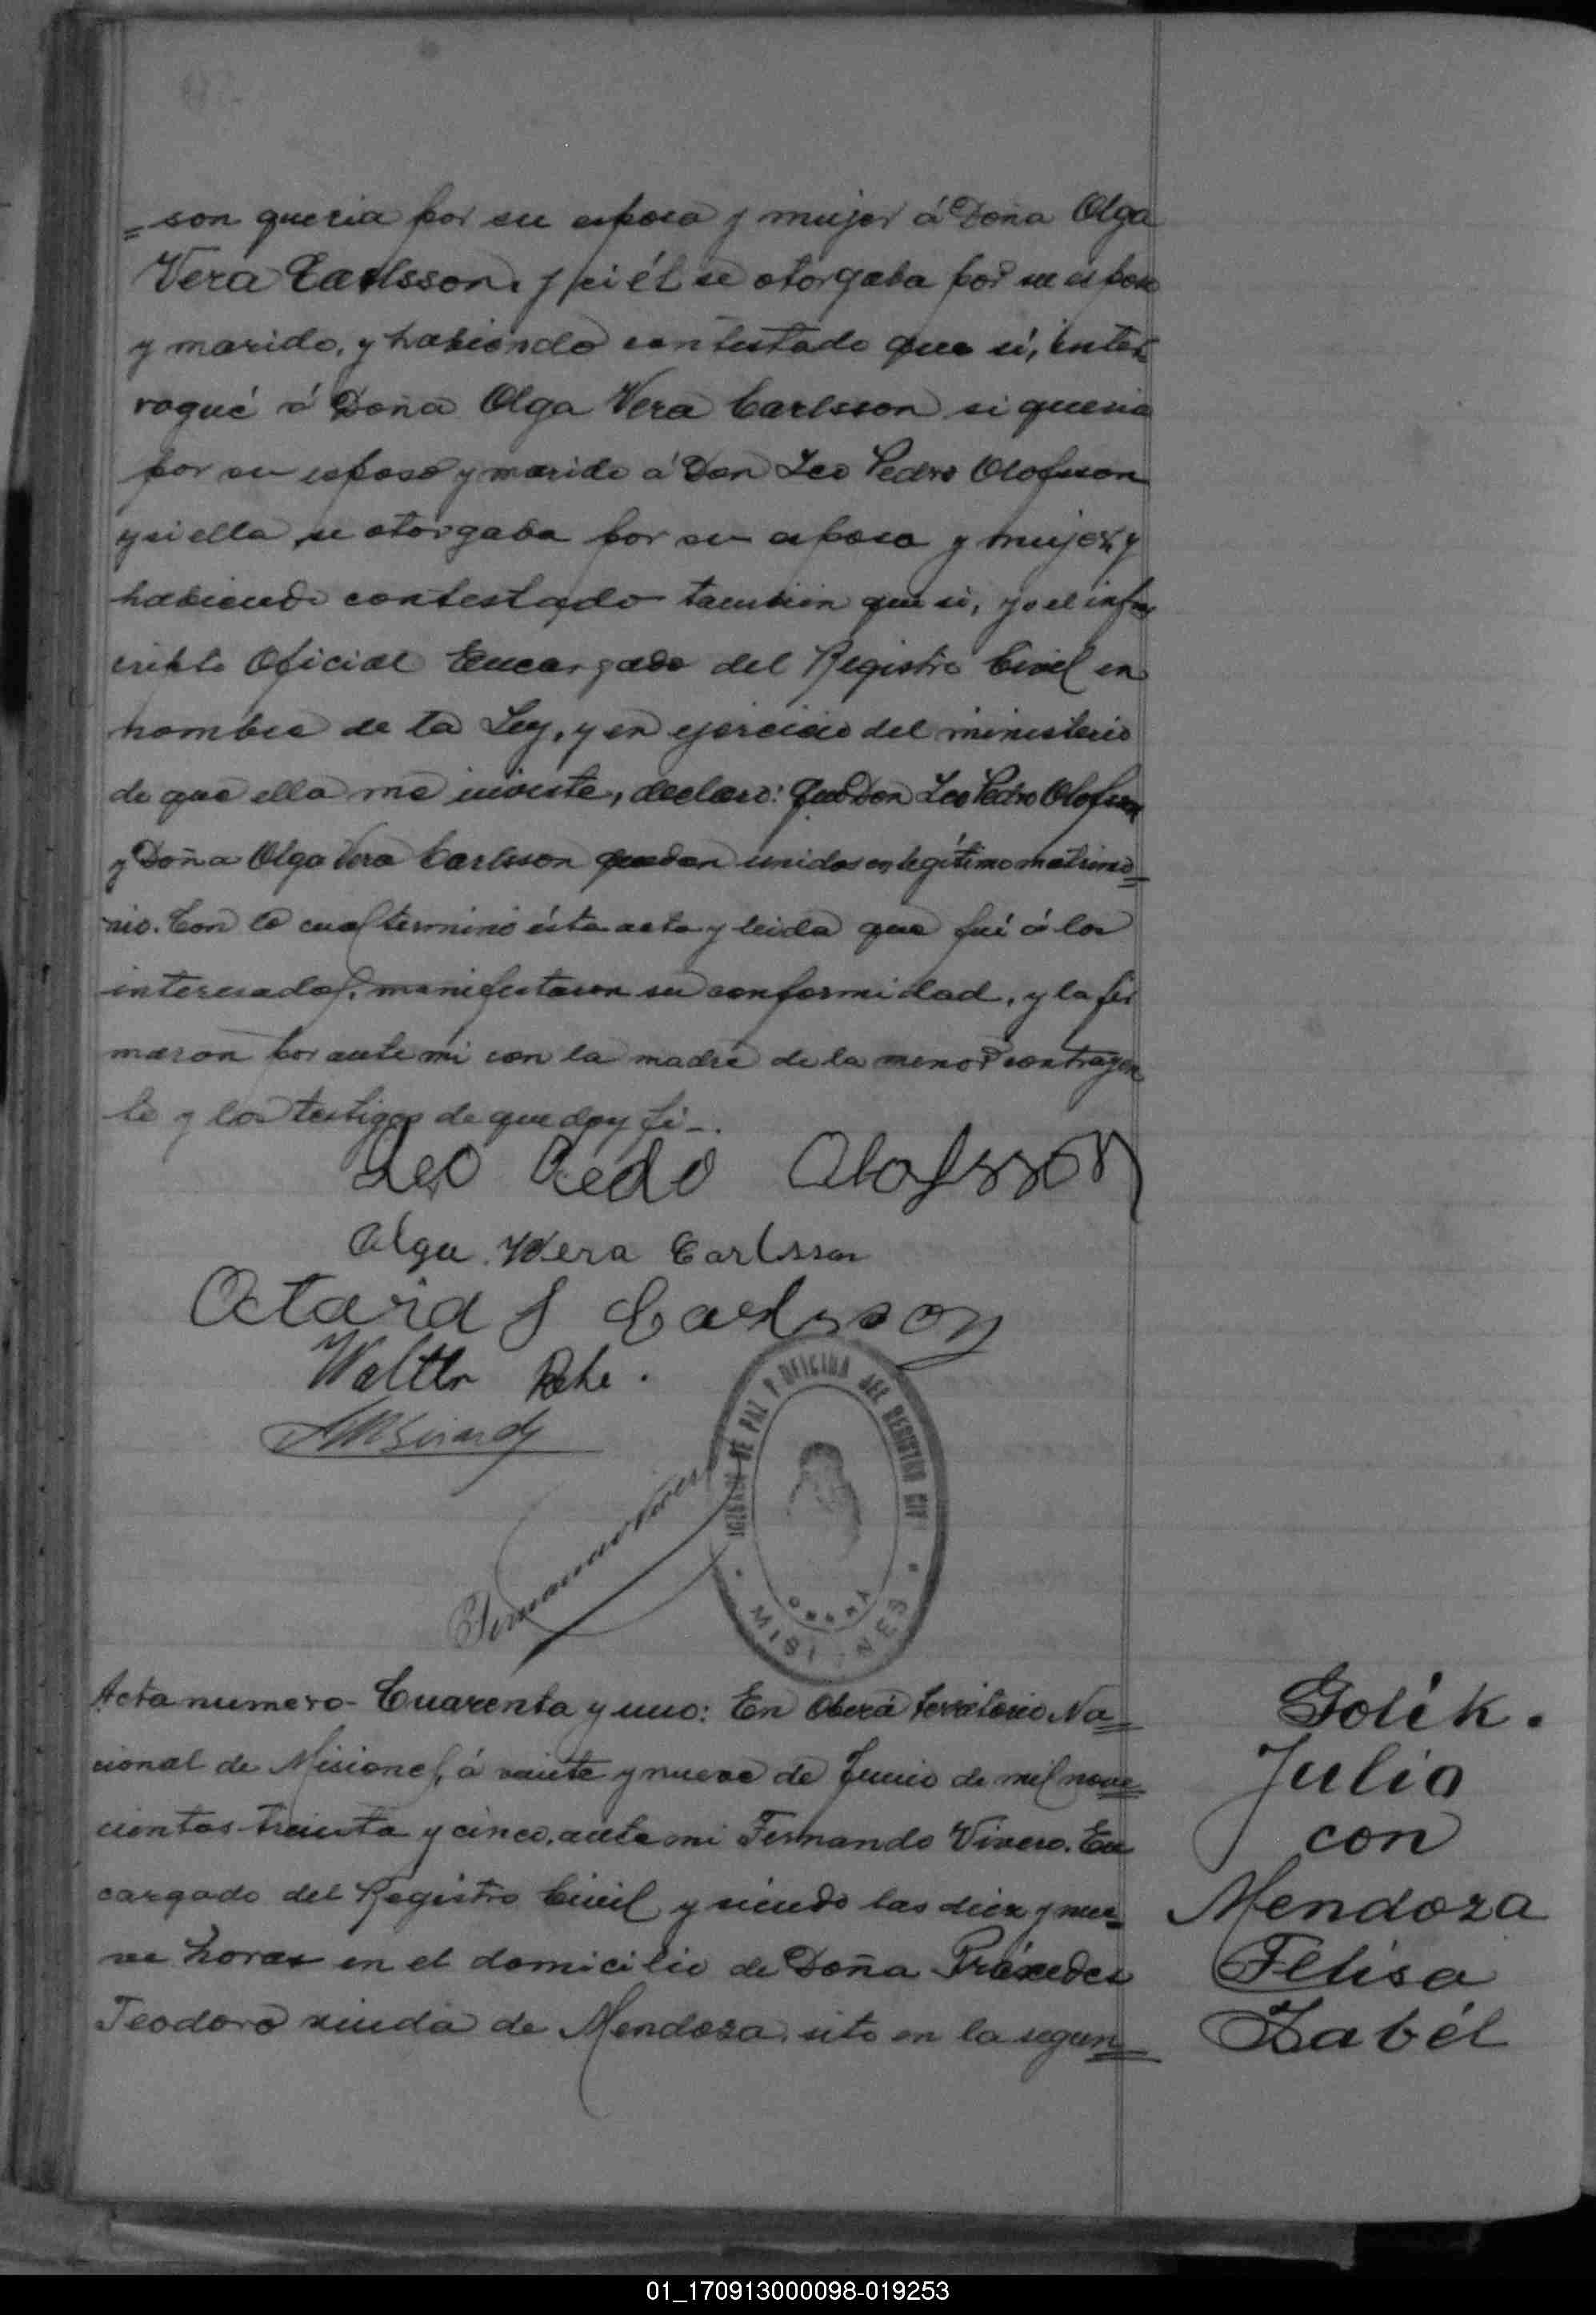 =son queria por su esposa y mujer á Doña Olga
Vera Carlsson, y si él se otorgaba por su esposo
y marido, y habiendo contestado que si, inter
rogué á Doña Olga Vera Carlsson si queria
por su esposo y marido á Don Leo Pedro Olofsson
y si ella se otorgaba por su esposa y mujer, y
habiendo contestado tambien que si, yo el infras
cripto Oficial Encargado del Registro Civil en
nombre de la Ley, y en ejercicio del ministerio
de que ella me inviste, declaro: Que Don Leo Pedro Olofsson
y Doña Olga Vera Carlsson quedan unidos en legítimo matrimo=
nio. Con lo cual terminó ésta acta y leida que fué á los
interesados, manifestaron su conformidad, y la fir
maron por ante mi con la madre de la menor contrayen
te y los testigos de que doy fé-.
Leo Pedro Olofsson
Olga Wera Carlsson
Carlsson
Walter
JUZGADO DE PAZ Y OFICINA DEL REGISTRO CIVIL
OBERÁ
MISIONES
Fernando Vivero
Acta numero - Cuarenta y uno: En Oberá territorio Na=
cional de Misiones, á veinte y nueve de Junio de mil nove=
cientos treinta y cinco, ante mi Fernando Vivero. En
cargado del Registro Civil y siendo las diez y nue=
ve horas en el domicilio de Doña Práxedes
Teodoro viuda de Mendoza, sito en la segun=
Golik.
Julio
con
Mendoza
Felisa
Isabél
01_170913000098-019253